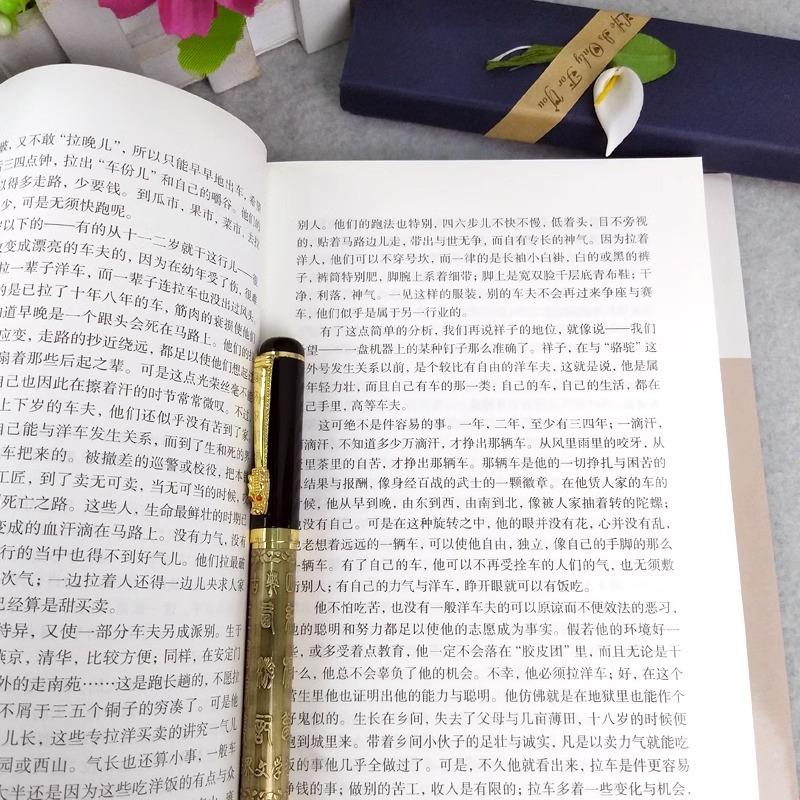 破，又不敢“拉晚儿”，所以只能早早地出车，希望
三四点钟，拉出“车份儿”和自己的嚼谷。他们的
似得多走路，少要钱。到瓜市，果市，菜市，去拉
少，可是无须快跑呢。
岁以下的——有的从十一二岁就干这行儿——很
变成漂亮的车夫的，因为在幼年受了伤，很难
拉一辈子洋车，而一辈子连拉车也没出过风头。
的是已拉了十年八年的车，筋肉的衰损使他们
知道早晚是一个跟头会死在马路上。他们的
应变，走路的抄近绕远，都足以使他们想起
扇着那些后起之辈。可是这点光荣丝毫不
自己也因此在擦着汗的时节常常微叹。不过
上下岁的车夫，他们还似乎没有苦到了家
自己能与洋车发生关系，而到了生和死的界
车把来的。被撤差的巡警或校役，把本
工匠，到了卖无可卖，当无可当的时候，
死亡之路。这些人，生命最鲜壮的时期已
变成的血汗滴在马路上。没有力气，没有
行的当中也得不到好气儿。他们拉最破
次气；一边拉着人还得一边儿央求人家
已经算是甜买卖。
特异，又使一部分车夫另成派别。生于
燕京，清华，比较方便；同样，在安定门
外的走南苑……这是跑长趟的，不愿拉
不屑于三五个铜子的穷凑了。可是他
儿长，这些专拉洋买卖的讲究一气儿
园或西山。气长也还算小事，一般车
大半还是因为这些吃洋饭的有点与众
别人。他们的跑法也特别，四六步儿不快不慢，低着头，目不旁视
的，贴着马路边儿走，带出与世无争，而自有专长的神气。因为拉着
洋人，他们可以不穿号坎，而一律的是长袖小白褂，白的或黑的裤
子，裤筒特别肥，脚腕上系着细带；脚上是宽双脸千层底青布鞋；干
净，利落，神气。一见这样的服装，别的车夫不会再过来争座与赛
车，他们似乎是属于另一行业的。
有了这点简单的分析，我们再说祥子的地位，就像说——我们
望——一盘机器上的某种钉子那么准确了。祥子，在与“骆驼”这
外号发生关系以前，是个较比有自由的洋车夫，这就是说，他是属
年轻力壮，而且自己有车的那一类；自己的车，自己的生活，都在
己手里，高等车夫。
这可绝不是件容易的事。一年，二年，至少有三四年；一滴汗，
滴汗，不知道多少万滴汗，才挣出那辆车。从风里雨里的咬牙，从
里茶里的自苦，才挣出那辆车。那辆车是他的一切挣扎与困苦的
结果与报酬，像身经百战的武士的一颗徽章。在他赁人家的车的
候，他从早到晚，由东到西，由南到北，像被人家抽着转的陀螺；
没有自己。可是在这种旋转之中，他的眼并没有花，心并没有乱，
老想着远远的一辆车，可以使他自由，独立，像自己的手脚的那么
一辆车。有了自己的车，他可以不再受拴车的人们的气，也无须敷
别人；有自己的力气与洋车，睁开眼就可以有饭吃。
他不怕吃苦，也没有一般洋车夫的可以原谅而不便效法的恶习，
的聪明和努力都足以使他的志愿成为事实。假若他的环境好一
些，或多受着点教育，他一定不会落在“胶皮团”里，而且无论是干
什么，他总不会辜负了他的机会。不幸，他必须拉洋车；好，在这个
营生里他也证明出他的能力与聪明。他仿佛就是在地狱里也能作个
好鬼似的。生长在乡间，失去了父母与几亩薄田，十八岁的时候便
跑到城里来。带着乡间小伙子的足壮与诚实，凡是以卖力气就能吃
饭的事他几乎全做过了。可是，不久他就看出来，拉车是件更容易
挣钱的事；做别的苦工，收入是有限的；拉车多着一些变化与机会，
Only For You